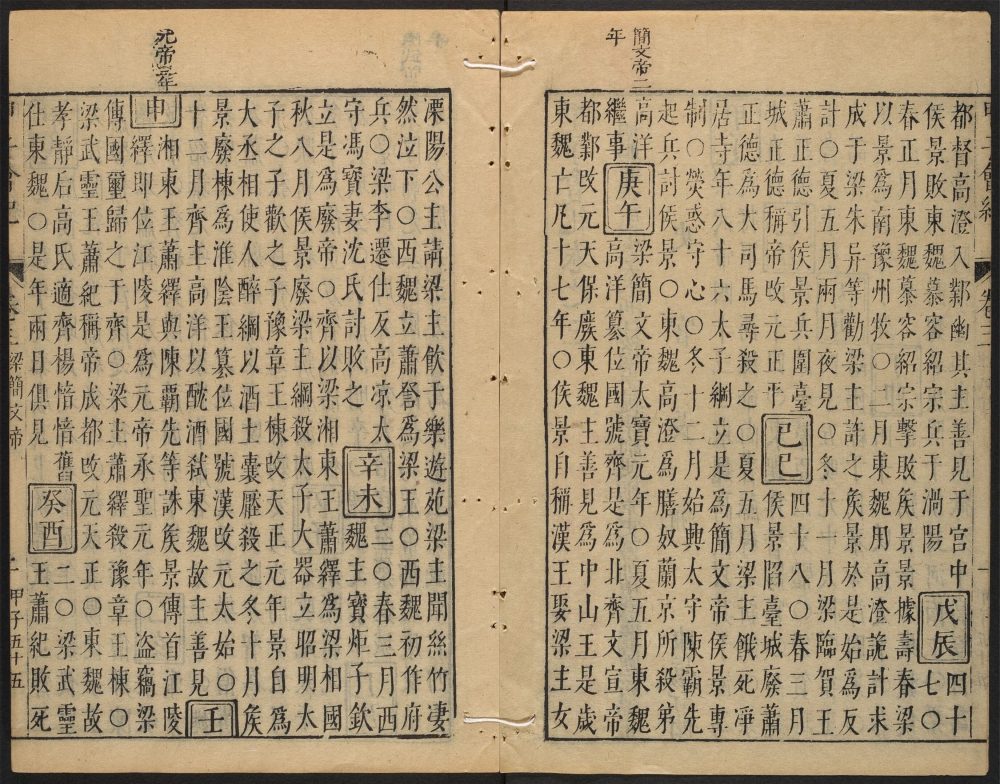 簡文帝二
年
都督高澄入鄴幽其主善見于宮中
侯景敗東魏慕容紹宗兵于渦陽
戊辰
四十
七○
春正月東魏慕容紹宗擊敗矦景景據壽春梁
以景為南豫州牧○二月東魏用高澄詭計求
成于梁朱异等勸梁主許之矦景於是始為反
計○夏五月兩月夜見○冬十一月梁臨賀王
蕭正德引侯景兵圍臺
城正德稱帝改元正平
己巳
四十八○春三月
侯景䧟臺城廢蕭
正德為大司馬尋殺之○夏五月梁主餓死凈
居寺年八十六太子綱立是為簡文帝侯景專
制○熒惑守心○冬十二月始興太守陳霸先
起兵討侯景○東魏高澄為膳奴蘭京所殺第
高洋
繼事
庚午
梁簡文帝太寶元年○夏五月東魏
高洋篡位國號齊是為北齊文宣帝
都鄴改元天保廢東魏主善見為中山王是歲
東魏亡凡十七年○侯景自稱漢王娶梁主女
元帝三年
溧陽公主請梁主飲于樂遊苑梁主聞絲竹凄
然泣下○西魏立蕭詧為梁王○西魏初作府
兵○梁李遷仕反高凉太
守馮寶妻沈氏討敗之
辛未
二○春三月西
魏主寶炬子欽
立是為廢帝○齊以梁湘東王蕭繹為梁相國
秋八月侯景廢梁主綱殺太子大器立昭明太
子之子歡之子豫章王棟改天正元年景自為
大丞相使人醉綱以酒土囊壓殺之冬十月矦
景廢棟為淮陰王篡位國號漢改元太始○
十二月齊主高洋以酖酒弒東魏故主善見
壬
申
湘東王蕭繹與陳霸先等誅矦景傳首江陵
繹即位江陵是為元帝承聖元年○盜竊梁
傳國璽歸之于齊○梁主蕭繹殺豫章王棟○
梁武霊王蕭紀稱帝成都改元天正○東魏故
孝靜后高氏適齊楊愔愔舊
仕東魏○是年兩日俱見
癸酉
二○梁武霊
王蕭紀敗死
卷三 梁簡文帝 二 甲子五十五